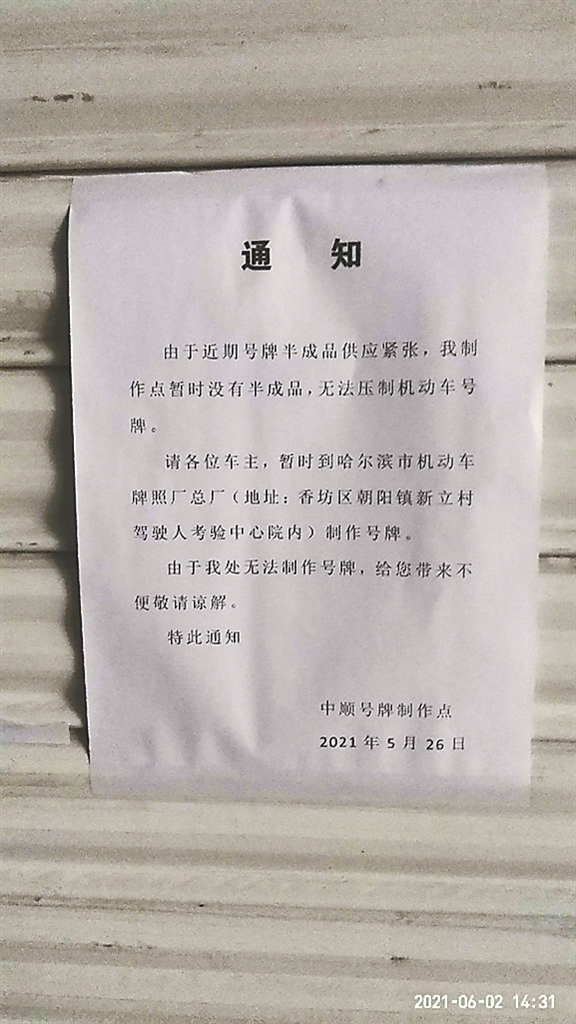 通 知
由于近期号牌半成品供应紧张，我制
作点暂时没有半成品，无法压制机动车号
牌。
请各位车主，暂时到哈尔滨市机动车
牌照厂总厂（地址：香坊区朝阳镇新立村
驾驶人考验中心院内）制作号牌。
由于我处无法制作号牌，给您带来不
便敬请谅解。
特此通知
中顺号牌制作点
2021 年 5 月 26 日
2021-06-02 14:31